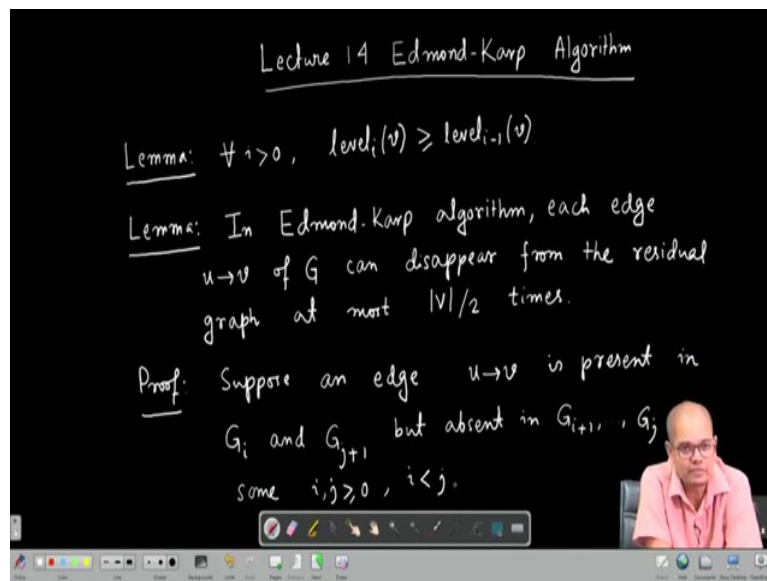 Lecture 14 Edmond-Karp Algorithm
Lemma: ∀ i>0, level_i(v) ≥ level_{i-1}(v)
Lemma: In Edmond-Karp algorithm, each edge
u→v of G can disappear from the residual
graph at most |V|/2 times.
Proof: Suppose an edge u→v is present in
G_i and G_{j+1} but absent in G_{i+1}, ..., G_j
some i,j ≥ 0, i < j.